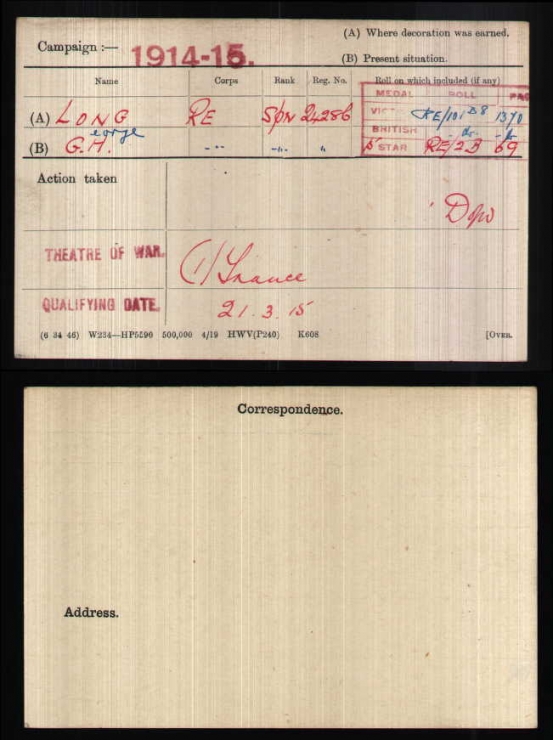 (A) Where decoration was earned.
Campaign :— 1914-15.
(B) Present situation.
Name Corps Rank Reg. No. Roll on which included (if any)
MEDAL ROLL PAG
(A) LONG RE Spr 24286 VIC RE/101 B8 1370
eorge BRITISH - do - - do
(B) G.H. -"- -"- " 15 STAR RE/2B 69
Action taken
THEATRE OF WAR. (1) France
QUALIFYING DATE. 21.3.15
(6 34 46) W234—HP5590 500,000 4/19 HWV(P240) K608 [OVER.
Correspondence.
Address.